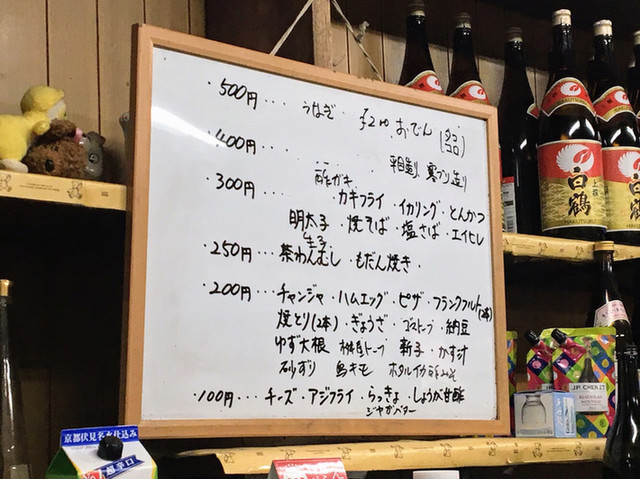 ・500円… うなぎ ・チュー おでん(タコ
コロ)
・400円… 平目造り 寒ブリ造り
・300円… 酢ガキ
カキフライ ・イカリング ・とんかつ
明太子 ・焼そば ・塩さば ・エイヒレ
・250円… 茶わんむし ・もだん焼き
・200円… チャンジャ ・ハムエッグ ・ピザ ・フランクフルト(2本)
焼とり(2本) ・ぎょうざ ・納豆
ゆず大根 新子 ・かす汁
砂ずり 鳥キモ ホタルイカ酢みそ
・100円… チーズ ・アジフライ ・らっきょ ・しょうが甘酢
ジャガバター
上撰
白鶴
HAKUTSURU
上撰
白鶴
京都伏見名水仕込み
超辛口